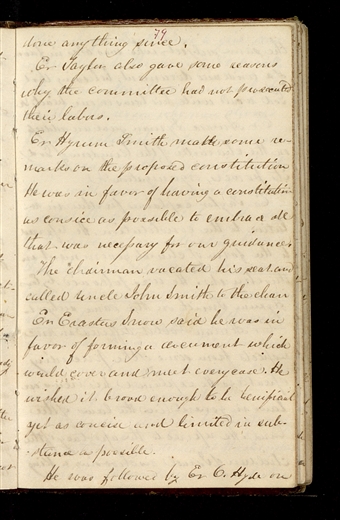 79
done anything since.
Er Taylor also gave some reasons
why the committee had not prosecuted
their labors.
Er Hyrum Smith made some re-
marks on the proposed constitution
He was in favor of having a constitution
as concise as possible to embrace all
that was necessary for our guidance.
The chairman vacated his seat and
called uncle John Smith to the chair
Er Erastus Snow said he was in
favor of forming a document which
would cover and meet every case. He
wished it broad enough to be beneficial
yet as concise and limited in sub-
stance as possible.
He was followed by Er O. Hyde on